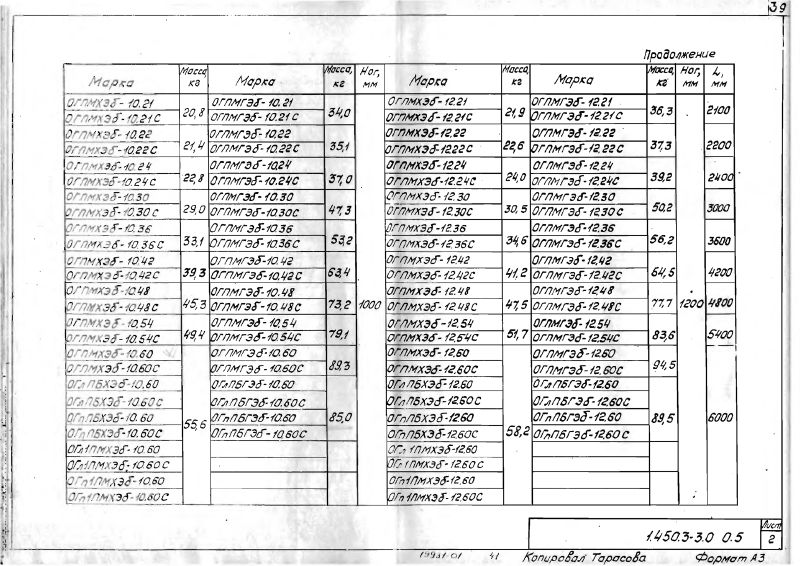 39
Продолжение
Марка Масса, кг Марка Масса, кг Ног, мм Марка Масса, кг Марка Масса, кг Ног, мм L, мм
ОГПМХЭб-10.21 20,8 ОГПМГЭб-10.21 34,0 ОГПМХЭб-12.21 21,9 ОГПМГЭб-12.21 36,3 2100
ОГПМХЭб-10.21С ОГПМГЭб-10.21С ОГПМХЭб-12.21С ОГПМГЭб-12.21С
ОГПМХЭб-10.22 21,4 ОГПМГЭб-10.22 35,1 ОГПМХЭб-12.22 22,6 ОГПМГЭб-12.22 37,3 2200
ОГПМХЭб-10.22С ОГПМГЭб-10.22С ОГПМХЭб-12.22С ОГПМГЭб-12.22С
ОГПМХЭб-10.24 22,8 ОГПМГЭб-10.24 37,0 ОГПМХЭб-12.24 24,0 ОГПМГЭб-12.24 39,2 2400
ОГПМХЭб-10.24С ОГПМГЭб-10.24С ОГПМХЭб-12.24С ОГПМГЭб-12.24С
ОГПМХЭб-10.30 29,0 ОГПМГЭб-10.30 47,3 ОГПМХЭб-12.30 30,5 ОГПМГЭб-12.30 50,2 3000
ОГПМХЭб-10.30С ОГПМГЭб-10.30С ОГПМХЭб-12.30С ОГПМГЭб-12.30С
ОГПМХЭб-10.36 33,1 ОГПМГЭб-10.36 53,2 ОГПМХЭб-12.36 34,6 ОГПМГЭб-12.36 56,2 3600
ОГПМХЭб-10.36С ОГПМГЭб-10.36С ОГПМХЭб-12.36С ОГПМГЭб-12.36С
ОГПМХЭб-10.42 39,3 ОГПМГЭб-10.42 63,4 ОГПМХЭб-12.42 41,2 ОГПМГЭб-12.42 64,5 4200
ОГПМХЭб-10.42С ОГПМГЭб-10.42С ОГПМХЭб-12.42С ОГПМГЭб-12.42С
ОГПМХЭб-10.48 45,3 ОГПМГЭб-10.48 73,2 1000 ОГПМХЭб-12.48 47,5 ОГПМГЭб-12.48 77,7 1200 4800
ОГПМХЭб-10.48С ОГПМГЭб-10.48С ОГПМХЭб-12.48С ОГПМГЭб-12.48С
ОГПМХЭб-10.54 49,4 ОГПМГЭб-10.54 79,1 ОГПМХЭб-12.54 51,7 ОГПМГЭб-12.54 83,6 5400
ОГПМХЭб-10.54С ОГПМГЭб-10.54С ОГПМХЭб-12.54С ОГПМГЭб-12.54С
ОГПМХЭб-10.60 55,6 ОГПМГЭб-10.60 89,3 ОГПМХЭб-12.60 58,2 ОГПМГЭб-12.60 94,5 6000
ОГПМХЭб-10.60С ОГПМГЭб-10.60С ОГПМХЭб-12.60С ОГПМГЭб-12.60С
ОГлПБХЭб-10.60 ОГлПБГЭб-10.60 85,0 ОГлПБХЭб-12.60 ОГлПБГЭб-12.60 89,5
ОГлПБХЭб-10.60С ОГлПБГЭб-10.60С ОГлПБХЭб-12.60С ОГлПБГЭб-12.60С
ОГпПБХЭб-10.60 ОГпПБГЭб-10.60 ОГпПБХЭб-12.60 ОГпПБГЭб-12.60
ОГпПБХЭб-10.60С ОГпПБГЭб-10.60С ОГпПБХЭб-12.60С ОГпПБГЭб-12.60С
ОГл1ПМХЭб-10.60 ОГл1ПМХЭб-12.60
ОГл1ПМХЭб-10.60С ОГл1ПМХЭб-12.60С
ОГп1ПМХЭб-10.60 ОГп1ПМХЭб-12.60
ОГп1ПМХЭб-10.60С ОГп1ПМХЭб-12.60С
1.450.3-3.0 0.5 Лист 2
19931-01 41 Копировал Тарасова Формат А3